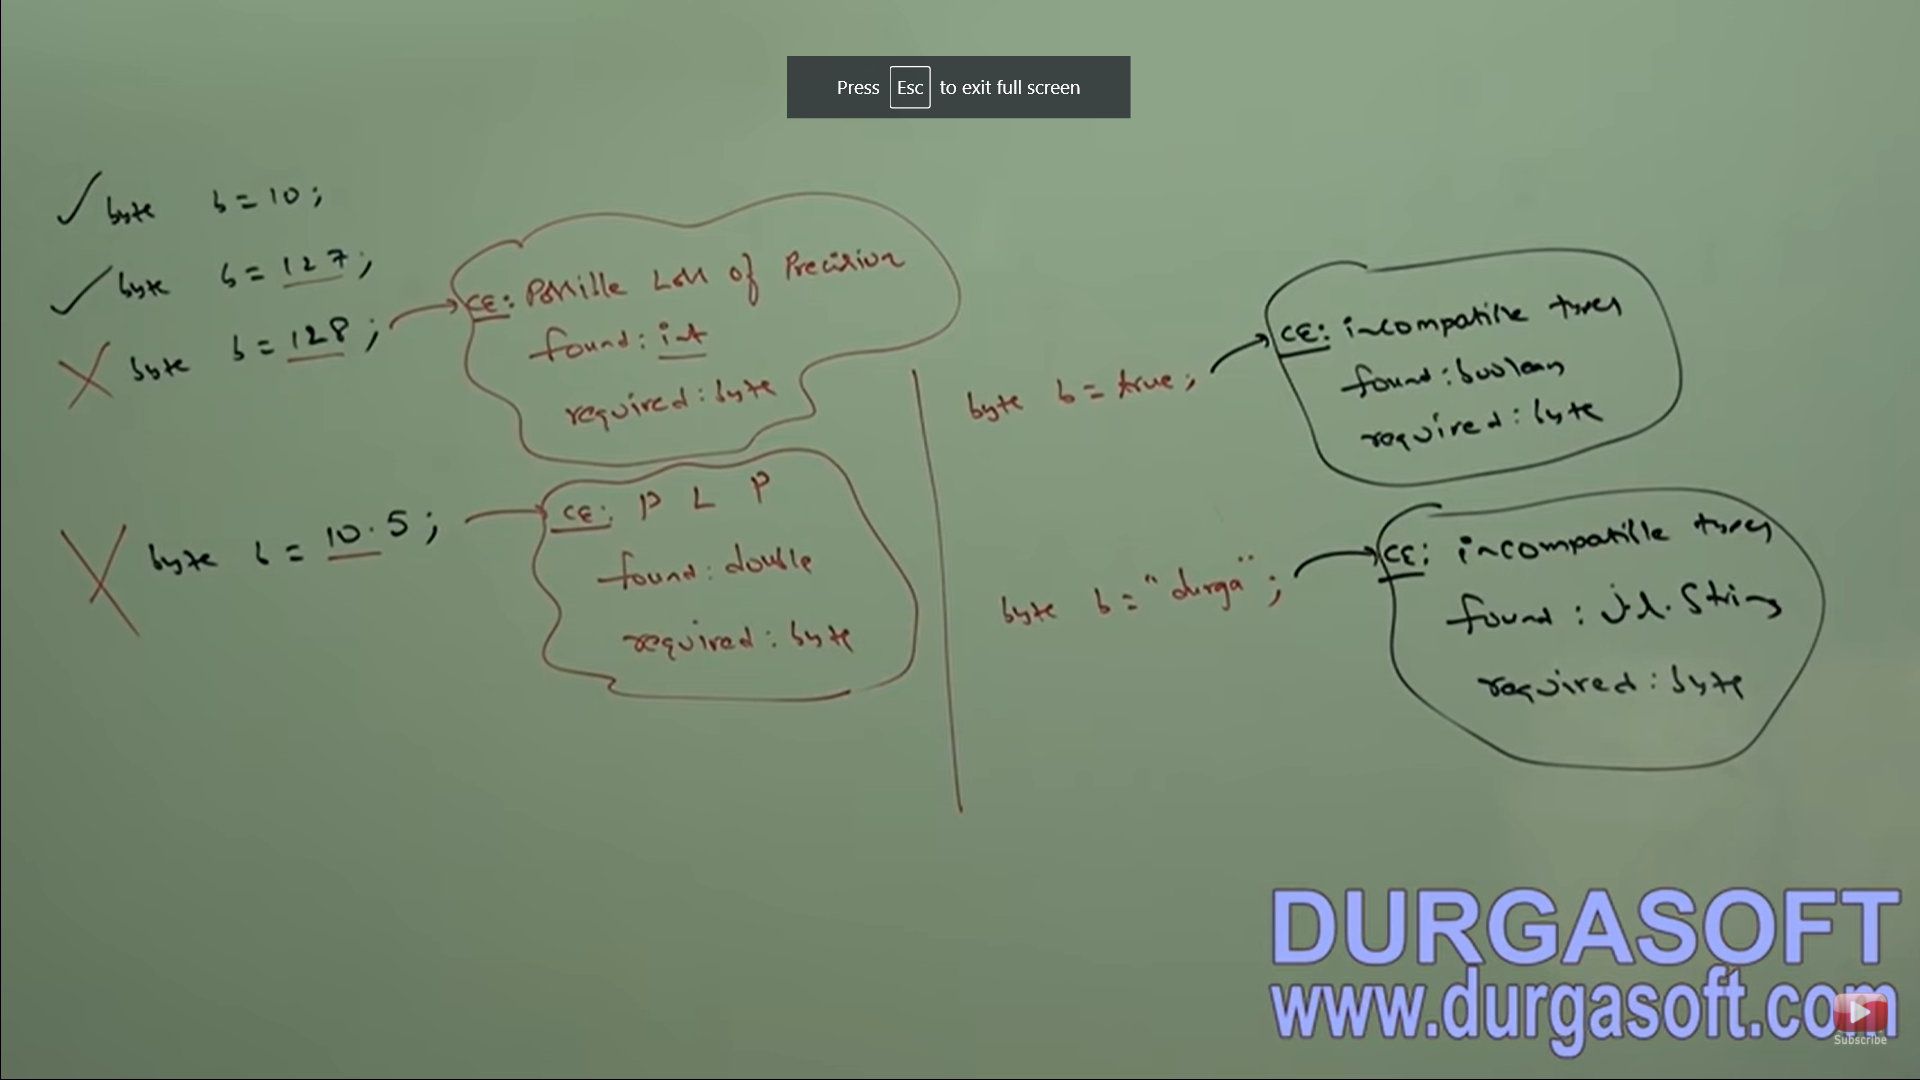 Press Esc to exit full screen
byte b = 10;
byte b = 127;
byte b = 128;
CE: Possible Loss of Precision
found: int
required: byte
byte b = 10.5;
CE: P L P
found: double
required: byte
byte b = true;
CE: incompatible types
found: boolean
required: byte
byte b = "durga";
CE: incompatible types
found: j.l.String
required: byte
DURGASOFT
www.durgasoft.com
Subscribe